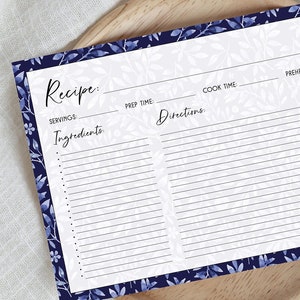 Recipe:
SERVINGS: PREP TIME: COOK TIME:
Ingredients: Directions: